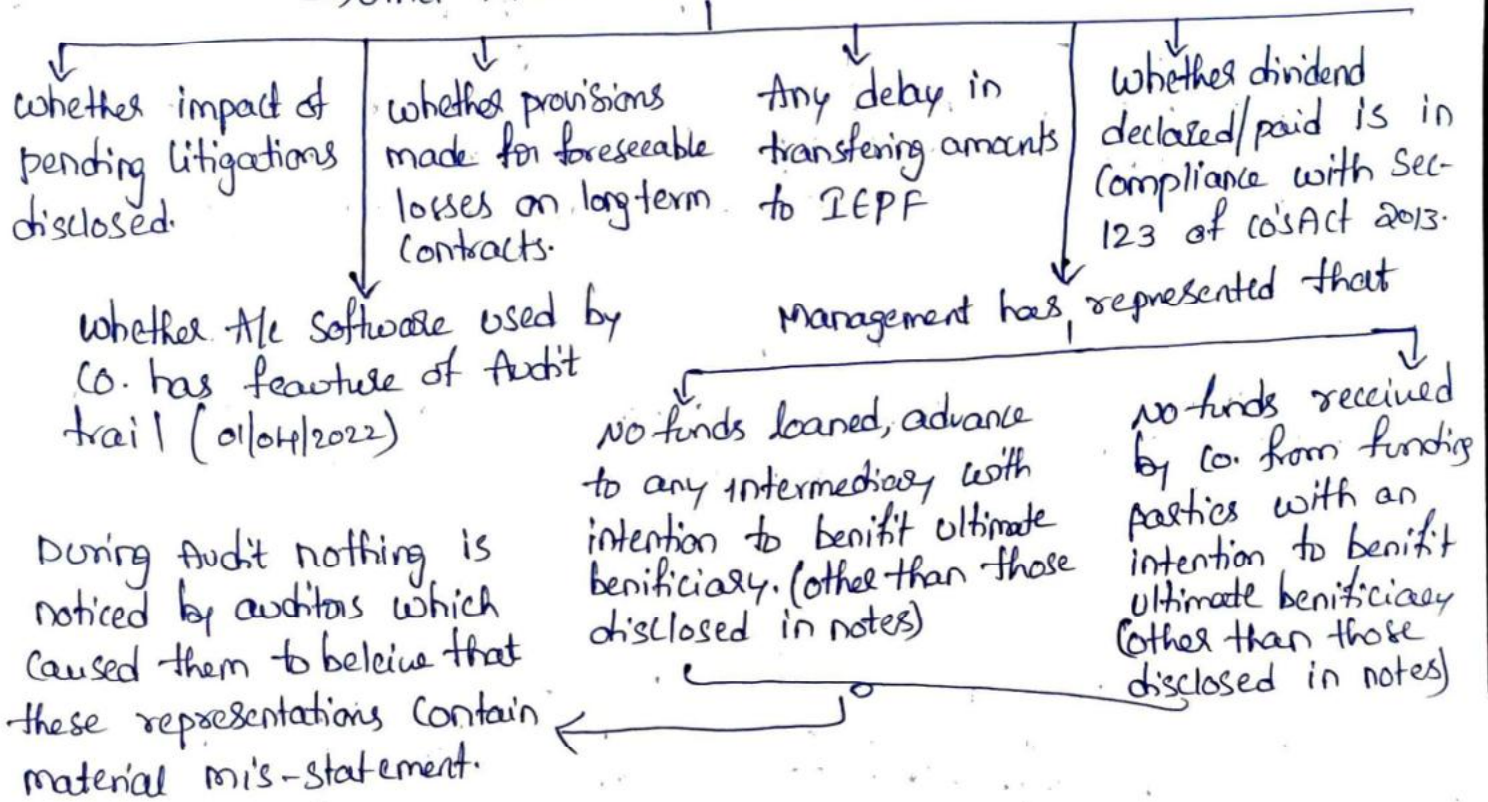 whether impact of
pending litigations
disclosed.
whether provisions
made for foreseeable
losses on long term
contracts.
Any delay in
transfering amounts
to IEPF
whether dividend
declared/paid is in
compliance with Sec-
123 of co's Act 2013.
whether A/c Software used by
co. has feauture of Audit
trail (01/04/2022)
Management has represented that
No funds loaned, advance
to any intermediary with
intention to benifit ultimate
benificiary. (other than those
disclosed in notes)
No funds received
by co. from funding
parties with an
intention to benifit
ultimate benificiary
(other than those
disclosed in notes)
During Audit nothing is
noticed by auditors which
caused them to beleive that
these representations contain
material mis-statement.